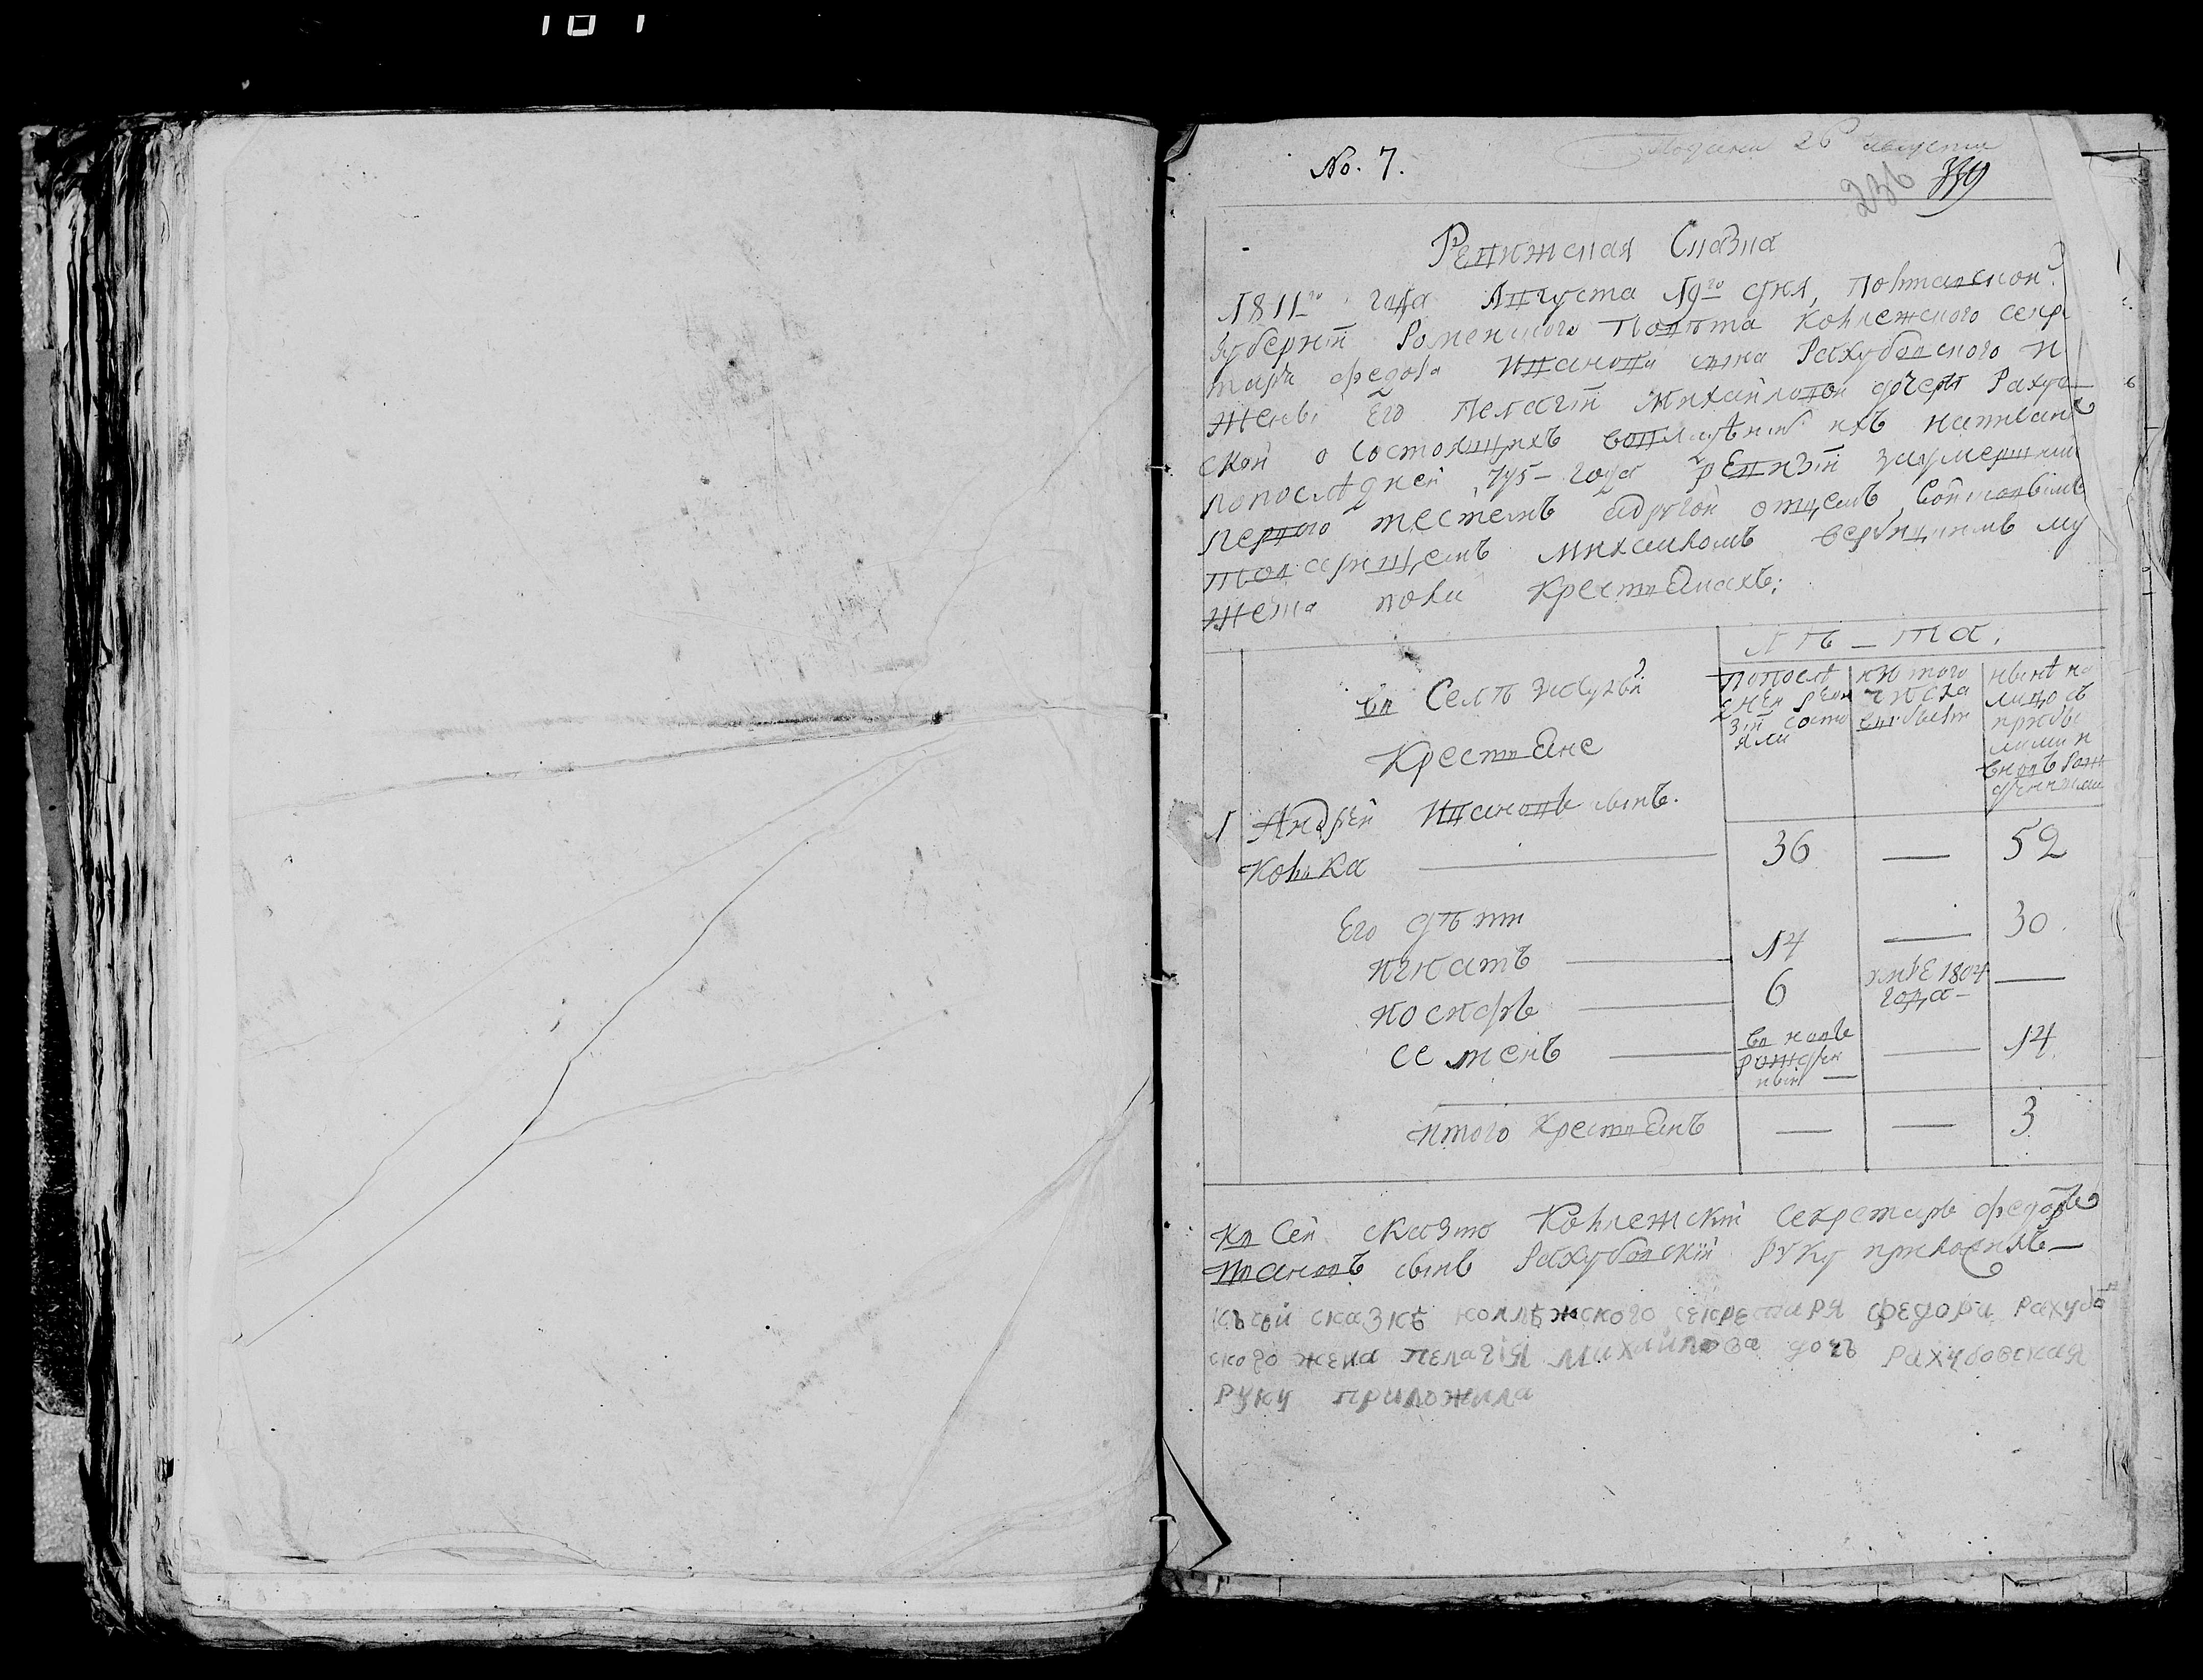 No. 7.
Подана 26 августа
236
Ревижская Сказка
1811го года Августа 19го дня, Полтавской
губернїи Роменского Повѣта Коллежского секре
таря Федора Иванова сына Рахубовского и
жены Его Пелагїи Михайловой дочери Рахуб
ской о состоящихъ
попоследней 795 года ревизїи заумершим
первого тестемъ адругой отцемъ
Михайломъ
жеска пола крестьянахъ:
лѣ-та.
въ Селѣ
Крестьяне
попослѣ
дней реви
зїи состо
яли
изъ того
числа
выбыли
нынѣ на
лицо съ
прибы
лыми и
вновь рож
денными
1 Андрей Ивановъ сынъ.
Колька — 36 — 52
Его дѣти
игнатъ — 14 — 30
иосифъ — 6 умре 1804 года —
семенъ — вновь рожденный — 14
итого крестьянъ — — 3
Къ Сей сказке Коллежскїй Секретарь Федоръ
Ивановъ сынъ Рахубовскїй руку приложилъ
къ сей сказкѣ коллѣжского секретаря федора Рахубов
ского жена пелагїя михайлова дочъ Рахубовская
руку приложила